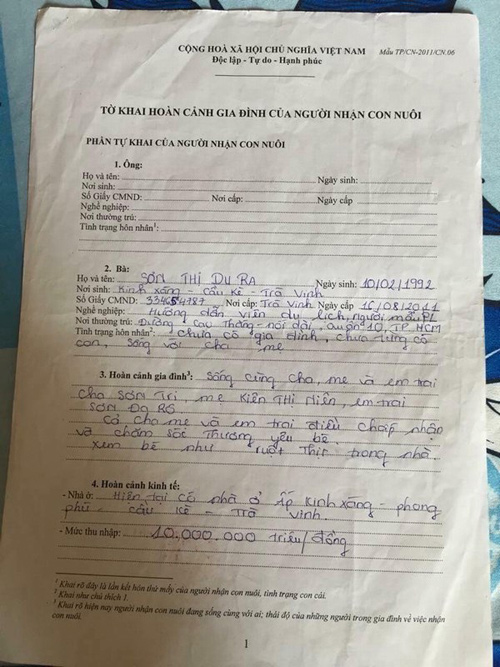 CỘNG HOÀ XÃ HỘI CHỦ NGHĨA VIỆT NAM
Mẫu TP/CN-2011/CN.06
Độc lập - Tự do - Hạnh phúc
TỜ KHAI HOÀN CẢNH GIA ĐÌNH CỦA NGƯỜI NHẬN CON NUÔI
PHẦN TỰ KHAI CỦA NGƯỜI NHẬN CON NUÔI
1. Ông:
Họ và tên: Ngày sinh:
Nơi sinh:
Số Giấy CMND: Nơi cấp: Ngày cấp
Nghề nghiệp:
Nơi thường trú:
Tình trạng hôn nhân¹:
2. Bà:
Họ và tên: SƠN THỊ DU RA Ngày sinh: 10/02/1992
Nơi sinh: Kinh xáng - cầu kè - Trà Vinh
Số Giấy CMND: 334654787 Nơi cấp: Trà Vinh Ngày cấp 16/08/2011
Nghề nghiệp: Hướng dẫn viên du lịch, người mẫu
Nơi thường trú: Đường Cao Thắng - nối dài, Quận 10, TP HCM
Tình trạng hôn nhân²: chưa có gia đình, chưa từng có
con, sống với cha mẹ
3. Hoàn cảnh gia đình³: Sống cùng cha, mẹ và em trai
cha SƠN TRI, mẹ KIÊN THỊ HIỀN, em trai
SƠN ĐA RÔ
Cả cha mẹ và em trai điều chấp nhận
và chăm sóc thương yêu bé.
xem bé như ruột thịt trong nhà.
4. Hoàn cảnh kinh tế:
- Nhà ở: Hiện tại có nhà ở ấp Kinh xáng - phong
phú - cầu kè - Trà Vinh.
- Mức thu nhập: 10.000.000 triệu/đồng
¹ Khai rõ đây là lần kết hôn thứ mấy của người nhận con nuôi, tình trạng con cái.
² Khai như chú thích 1.
³ Khai rõ hiện nay người nhận con nuôi đang sống cùng với ai; thái độ của những người trong gia đình về việc nhận
con nuôi.
1